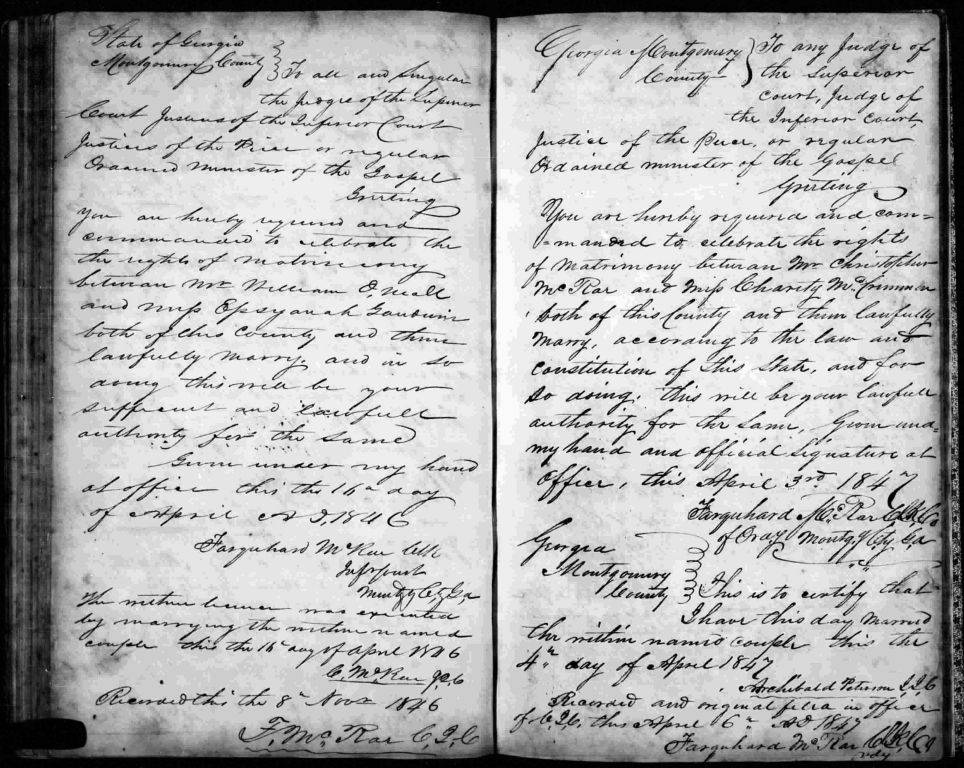 State of Georgia
Montgomery County } To all and Singular
the Judges of the Superior
Court Justices of the Inferior Court
Justices of the Peice or regular
Ordained minister of the Gospel
Greeting
You are hereby required and
commanded to celebrate the
the rights of matrimony
between Mr William O,Neall
and Miss Epsyanah
both of this County and them
lawfully Marry, and in so
doing this will be your
sufficient and lawfull
authority for the same
Given under my hand
at office this the 16th day
of April A D, 1846
Farquhard McRae Clk
Inf Court
Montgy Cty Ga
The within licence was executed
by marrying the within named
couple this the 16th day of April 1846
C. McRae J.P.C
Recorded this the 8th Novr 1846
F. Mc Rae C,I,C
Georgia Montgomery
County } To any Judge of
the Superior
court, Judge of
the Inferior Court,
Justice of the Peace, or regular
Ordained minister of the Gospel
Greeting
You are hereby required and com=
=manded to celebrate the rights
of Matrimony between Mr Christopher
McRae and Miss Charity McCrimmon
both of this County and them lawfully
Marry, according to the law and
constitution of this State, and for
so doing, this will be your lawfull
authority for the same, Given und=
my hand and official Signature at
Office, this April 3rd 1847
Farquhard Mc Rae
of Ordy Montgy Cty Ga
Georgia
Montgomery
County } This is to certify that
I have this day Married
the within named couple this the
4th day of April 1847
Archibald Peterson J,I,C
Recorded and original filed in office
of C,I,C, this April 6th AD 1847
Farquhard Mc Rae